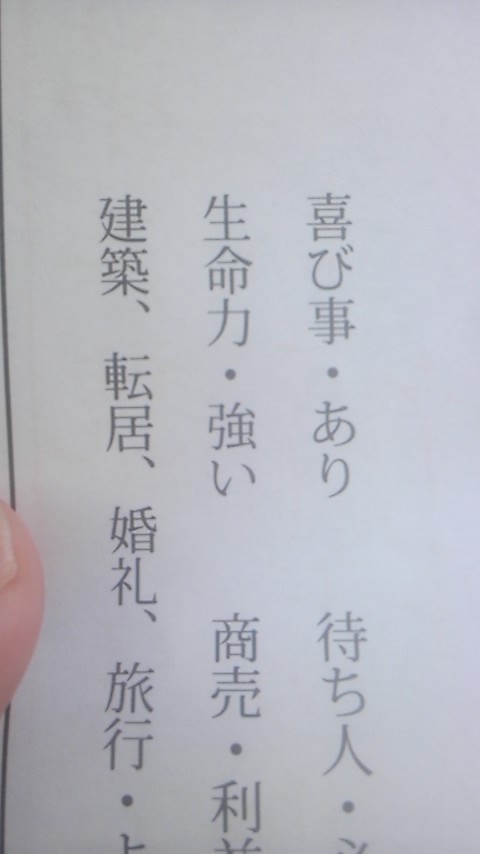 喜び事・あり　待ち人・
生命力・強い　商売・利
建築、転居、婚礼、旅行・